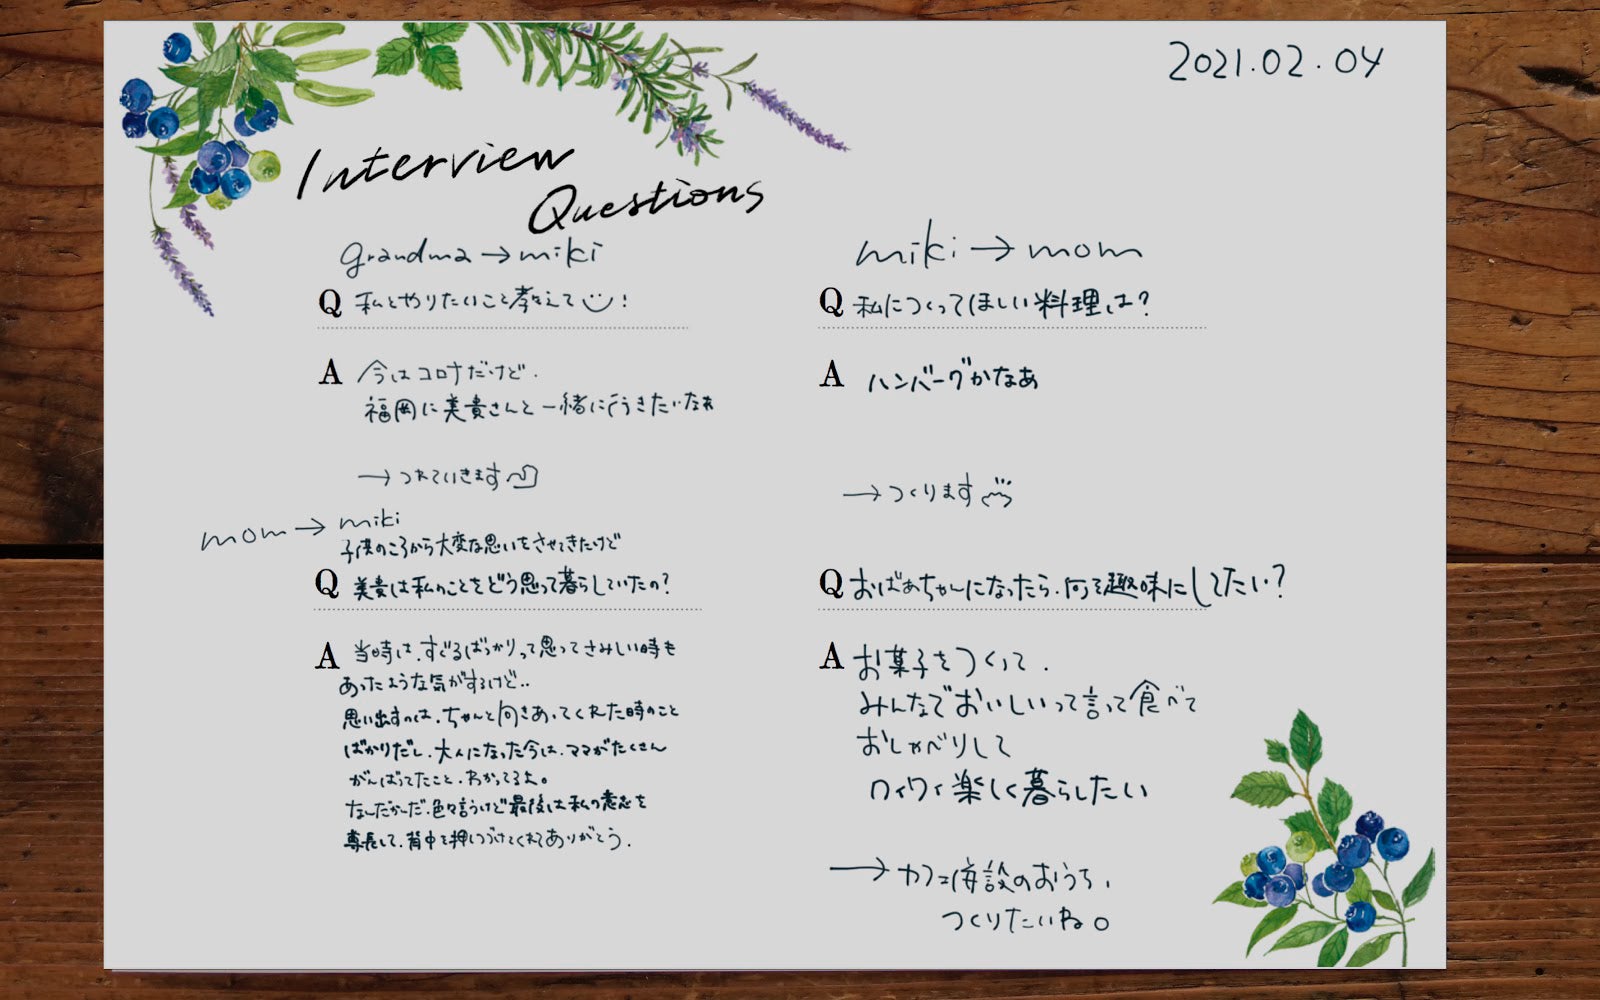 2021.02.04
Interview
Questions
grandma→miki
Q 私とやりたいこと教えて!
A 今はコロナだけど.
福岡に美貴さんと一緒に行きたいなぁ
→つれていきます
mom→miki
子供のころから大変な思いをさせてきたけど
Q 美貴は私のことをどう思って暮らしていたの?
A 当時は、すぐるばっかりって思ってさみしい時も
あったような気がするけど..
思い出すのは、ちゃんと向きあってくれた時のこと
ばかりだし、大人になった今は、ママがたくさん
がんばってたこと、わかってるよ。
なんだかんだ、色々言うけど最後は私の意志を
尊長して、背中を押しつづけてくれてありがとう.
miki→mom
Q 私につくってほしい料理は?
A ハンバーグかなあ
→つくります
Q おばあちゃんになったら、何を趣味にしてたい?
A お菓子をつくって、
みんなでおいしいって言って食べて
おしゃべりして
ワイワイ楽しく暮らしたい
→カフェ併設のおうち、
つくりたいね。